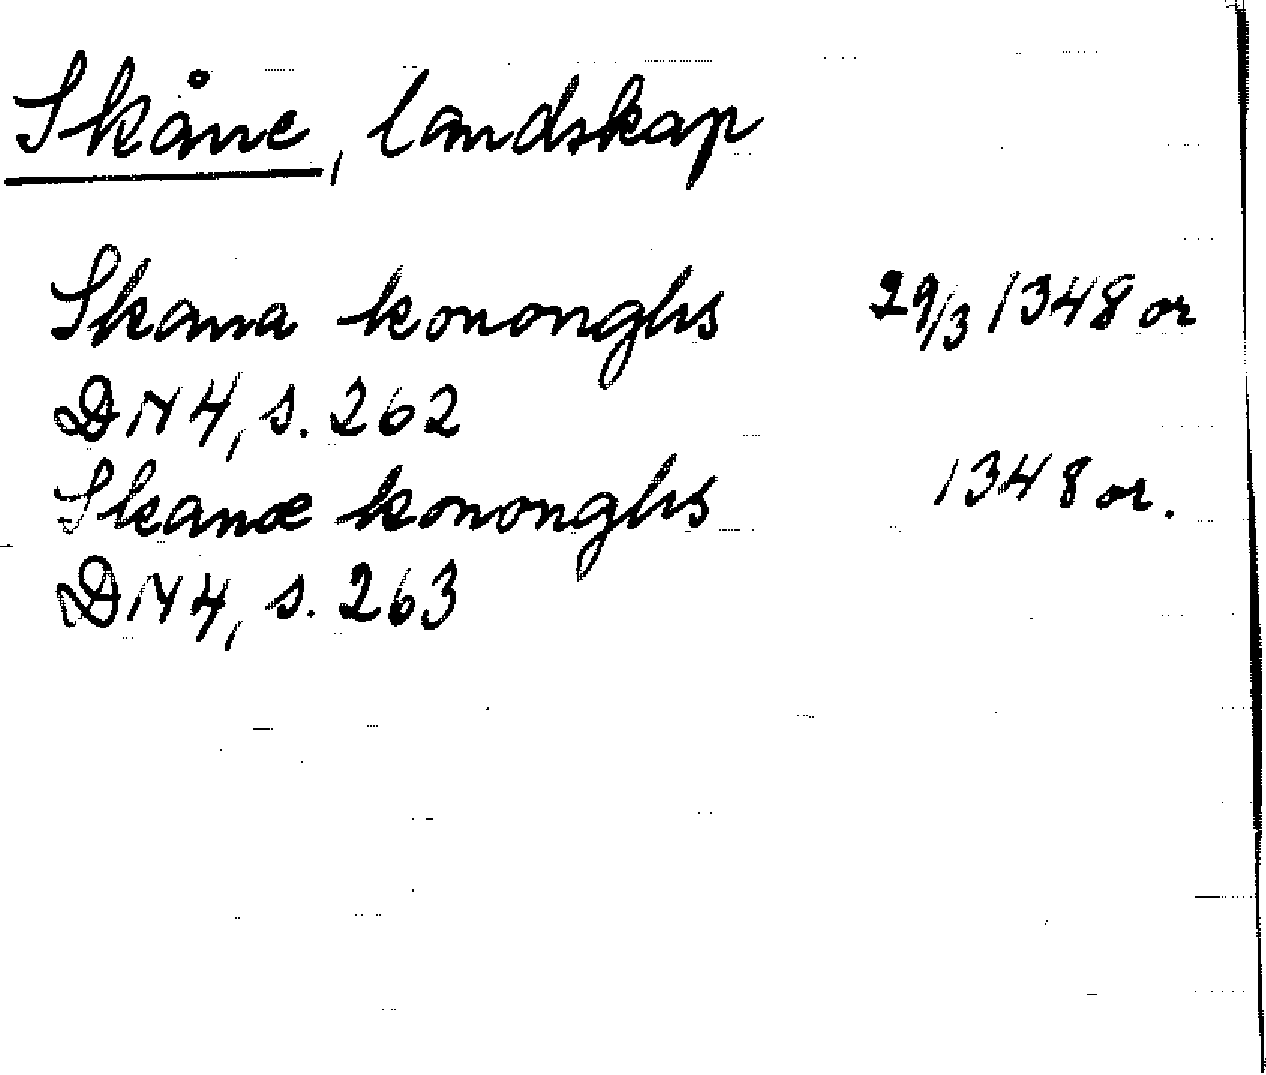 Skåne, landskap
Skana kononghs 29/3 1348 or
DN 4, s. 262
Skanæ kononghs 1348 or.
DN 4, s. 263